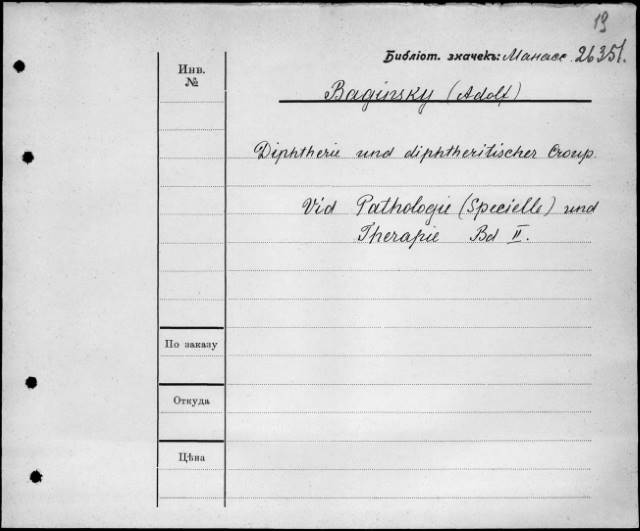 19
Библіот. значекъ: Манасс. 26351.
Инв.
№
Baginsky (Adolf)
Diphtherie und diphtheritischer Croup.
Vid Pathologie (Specielle) und
Therapie Bd II.
По заказу
Откуда
Цѣна